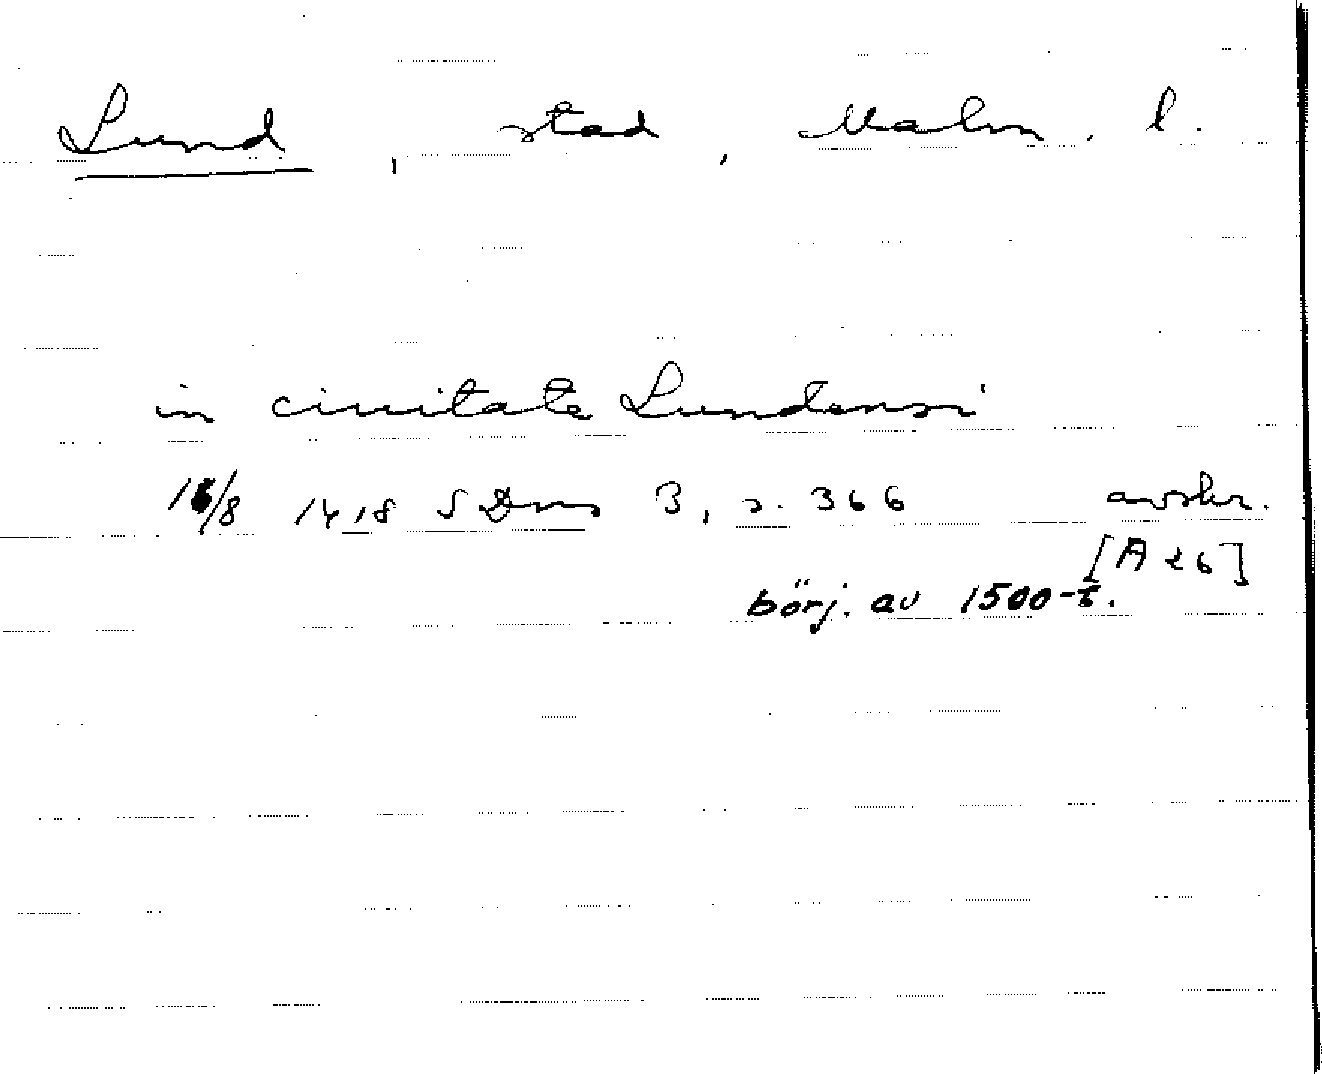 Lund, stad, Malm. l.
in ciuitate Lundensi
16/8 1418 SDns 3, s. 366 avskr.
[A 26]
börj. av 1500-t.